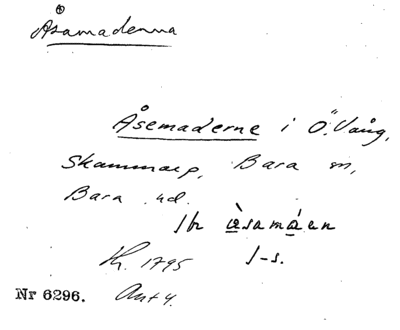 Åsamadenna
Åsemaderne i Ö. Vång,
Skammarp, Bara sn,
Bara hd.
Kr. 1795
Nr 6296. Ant 4.